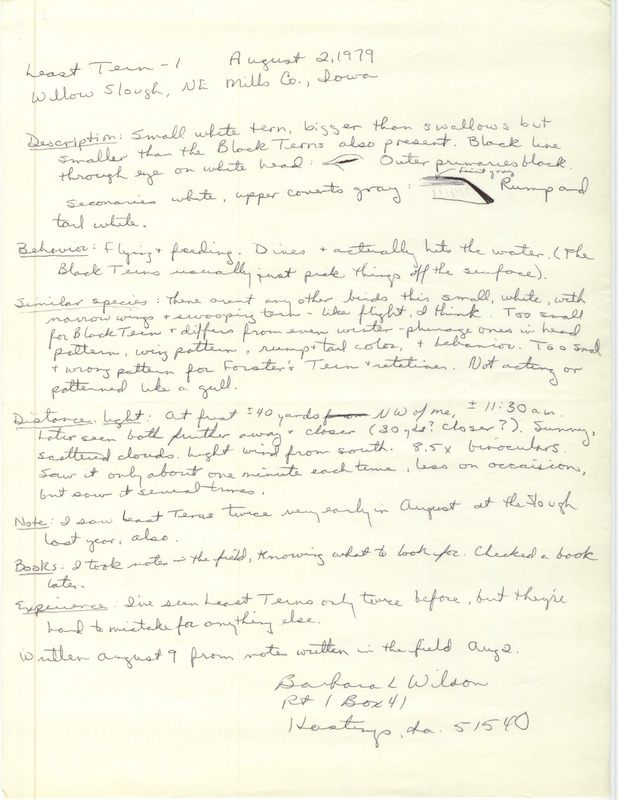 Least Tern - 1 August 2, 1979
Willow Slough, NE Mills Co., Iowa
Description: Small white tern, bigger than swallows but
smaller than the Black Terns also present. Black line
through eye on white head: Outer primaries black.
faint gray
Seconaries white, upper coverts gray: Rump and
tail white.
Behavior: Flying + feeding. Dives + actually hits the water. (The
Black Terns usually just pick things off the surface).
Similar species: There arent any other birds this small, white, with
narrow wings + swooping tern-like flight, I think. Too small
for Black Tern + differs from even winter-plumage ones in head
pattern, wing pattern, rump + tail color, + behavior. Too small
+ wrong pattern for Forster's Tern + relatives. Not acting or
patterned like a gull.
Distance, Light: At first ± 40 yards from NW of me, ± 11:30 am.
Later seen both further away + closer (30 yds? closer?). Sunny,
scattered clouds. Light wind from south. 8.5x binoculars.
Saw it only about one minute each time, less on occaision,
but saw it several times.
Note: I saw Least Terns twice very early in August at the Slough
last year, also.
Books: I took notes in the field, knowing what to look for. Checked a book
later.
Experience: I've seen Least Terns only twice before, but they're
hard to mistake for anything else.
Written August 9 from notes written in the field Aug 2.
Barbara L Wilson
Rt 1 Box 41
Hastings, Ia. 51540